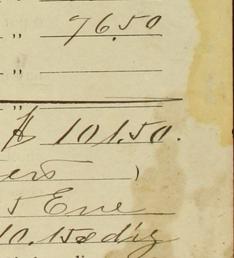 " 76.50
"
"
"
$ 101.50.
ers )
5 Eve
10.15